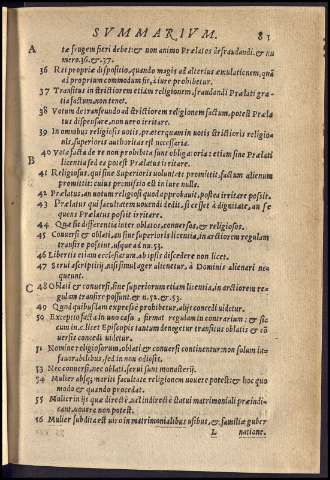 SVMMARIVM. 83
A
tæ frugem fieri debet: & non animo Prælatos defraudandi. & nu
mero. 36. & 37.
36 Rei propriæ dispositio, quando magis ad alterius æmulationem, quã
ad proprium commodum fit, à iure prohibetur.
37 Transitus in strictiorem etiam religionem, fraudandi Prælati gra-
tia factum, non tenet.
38 Votum de transeundo ad strictiorem religionem factum, potest Præla
tus dispensare, non vero irritare.
39 In omnibus religiosis votis, præterquam in votis strictioris religio-
nis, superioris authoritas est necessaria.
40 Vota facta de re non prohibita sunt obligatoria: etiam sine Prælati
B
licentia sed ea potest Prælatus irritare.
41 Religiosus, qui sine Superioris voluntate promittit, factum alienum
promittit: cuius promissio est in iure nulla.
42 Prælatus, an votum religiosi quod approbauit, postea irritare possit.
43 Prælatus qui facultatem vouendi dedit, si cesset à dignitate, an se
quens Prælatus possit irritare.
44 Quæ sit differentia inter oblatos, conuersos, & religiosos.
45 Conuersi & oblati, an sine superioris licentia, in arctiorem regulam
transire possint, vsque ad nu. 53.
46 Libertis etiam ecclesiarum, ab ipsis discedere non licet.
47 Serui ascriptitij, nisi simul ager alienetur, à Dominis alienari ne-
queunt.
C
48 Oblati & conuersi, sine superiorum etiam licentia, in arctiorem re-
gulam transire possunt. & n. 52. & 53.
49 Quod quibusdam expresse prohibetur, alijs concedi videtur.
50 Exceptio facta in vno casu, firmat regulam in contrarium: & sic
cum in. c. licet Episcopis tantum denegetur transitus oblatis & cõ
uersis concedi videtur.
51 Nomine religiosorum, oblati & conuersi continentur: non solum in
fauorabilibus, sed in non odiosis.
53 Nec conuersi, nec oblati, serui sunt monasterij.
54 Mulier absq; mariti facultate religionem vouere potest: & hoc quo
modo & quando procedat.
55 Mulier in ijs quæ directè, vel indirectè statui matrimoniali præiudi-
cant, vouere non potest.
56 Mulier subdita est viro in matrimonialibus vsibus, & familiæ guber
L natione.